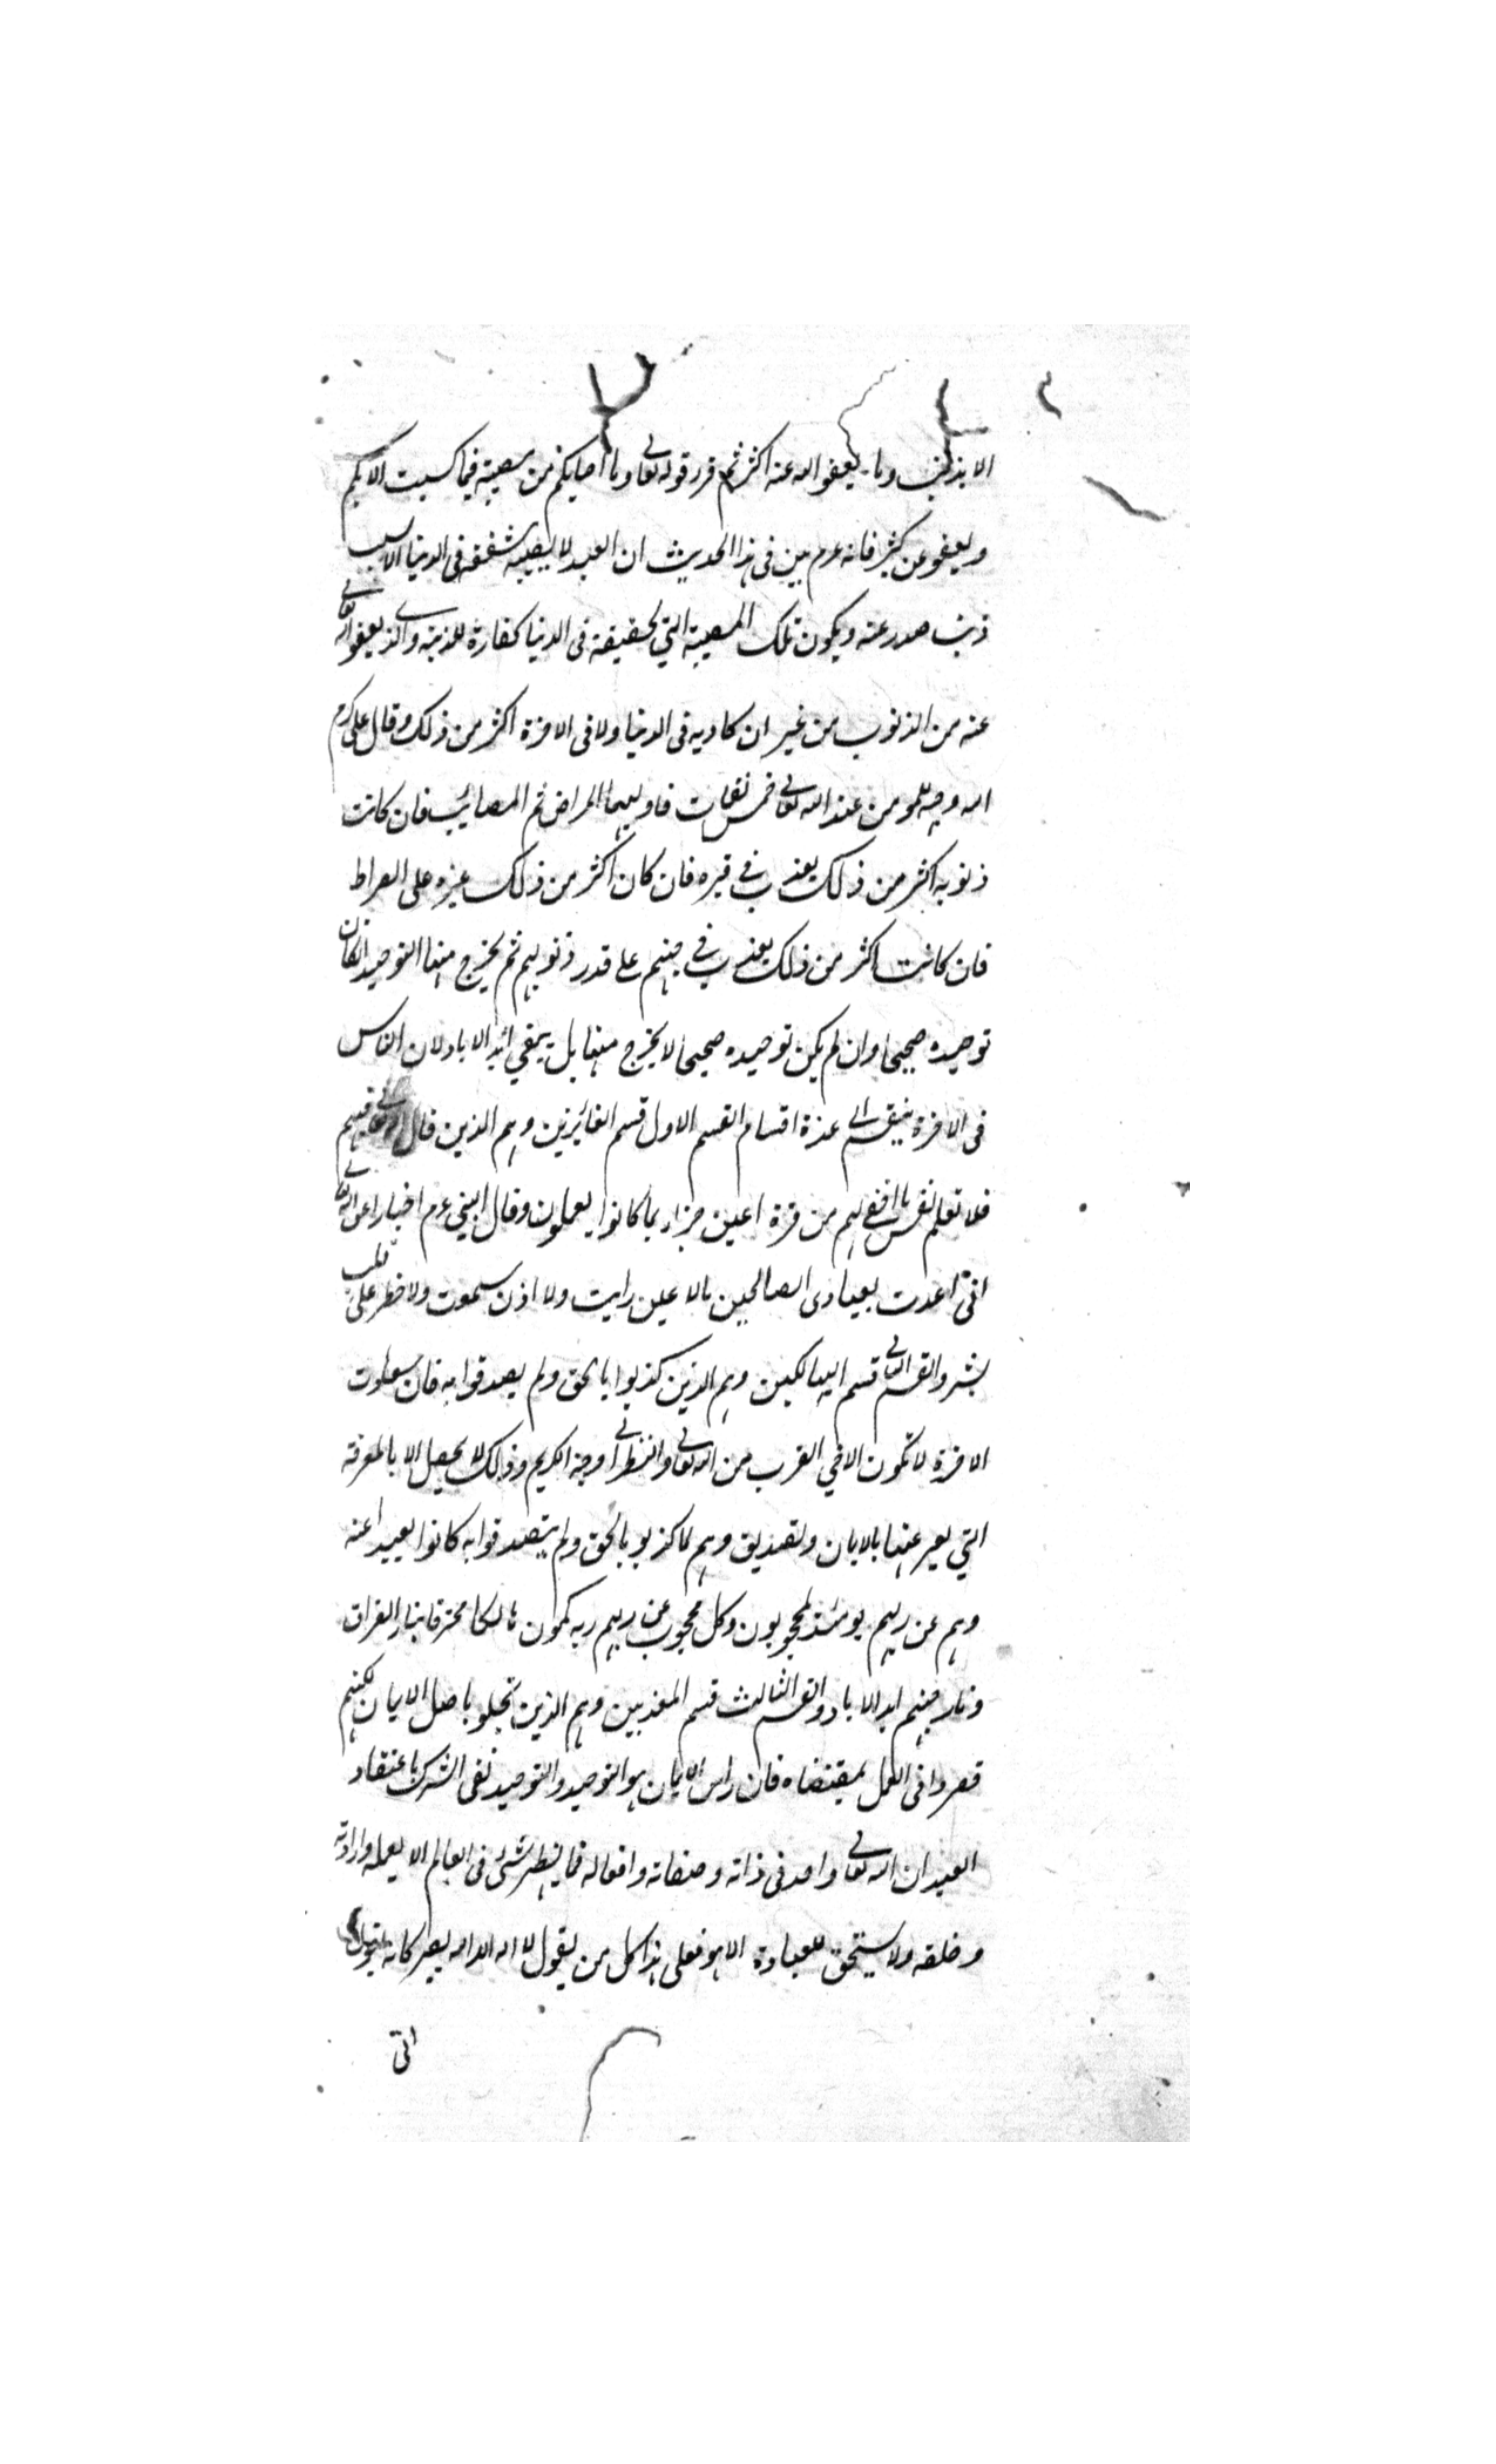 الا بذنب وما يعفو الله عنه اكثر ثم قرر قوله تعالى وما اصابكم من مصيبة فيما كسبت الايكم
ويعفو عن كثير فانه عرم بين فى هذا الحديث ان العبد لا يصيبه شفقه فى الدنيا الا بسبب
ذنب صدر عنه ويكون تلك المصيبة التي لحقيقة فى الدنيا كفارة للذنبه والذي يعفو الله تعالى
عنه من الذنوب من غير ان كاديه فى الدنيا ولا فى الاخرة اكثر من ذلك وقال على كرم
الله وجهه للمومن عند الله تعالى خمس نقمات فاوليها المراض ثم المصائب فان كانت
ذنوبه اكثر من ذلك يعذب في قبره فان كان اكثر من ذلك عبره على الصراط
فان كانت اكثر من ذلك يعذب في جهنم على قدر ذنوبهم ثم يخرج منها التوحيد انكان
توحيده صحيحا وان لم يكن توحيده صحيحا لا يخرج منها بل يبقي ابد الاباد لان الناس
فى الاخرة ينقسم الى عدة اقسام القسم الاول قسم الفائزين وهم الذين قال الله تعالى فيهم
فلا تعلم نفس ما اخفي لهم من قرة اعين جزاء بما كانوا يعملون وقال النبي عرم اخبارا عن الله تعالى
انى اعدت بعبادى الصالحين مالا عين رايت ولا اذن سمعت ولا خطر على قلب
بشر والقسم الثانى قسم الهالكين وهم الذين كذبوا بالحق ولم يصدقوا به فان سعادت
الاخرة لا تكون الا في القرب من الله تعالى والنظر الى وجه الكريم وذلك لا يحصل الا بالمعرفة
التي يعبر عنها بالايمان ولصديق وهم لما كذبو بالحق ولم يتصدقوا به كانوا بعيدا عنه
وهم عن ربهم يومئذ لمحجوبون وكل محجوب عن ربهم ربه كمون هالكا محترقا بنار الفراق
ونار جهنم ابد الاباد والقسم الثالث قسم المعذبين وهم الذين تجلو باصل الايمان لكنهم
قصروا فى العمل بمقتضاه فان راس الايمان هو التوحيد والتوحيد نفى الشرك باعتقاد
العبد ان الله تعالى واحد فى ذاته وصفاته وافعاله فما يظهر شئ فى العالم الا بعلمه وارادته
وخلقه ولا يستحق للعبادة الا هو فعلى هذا كل من يقول لا اله الا الله يصير كانه يقول
انى